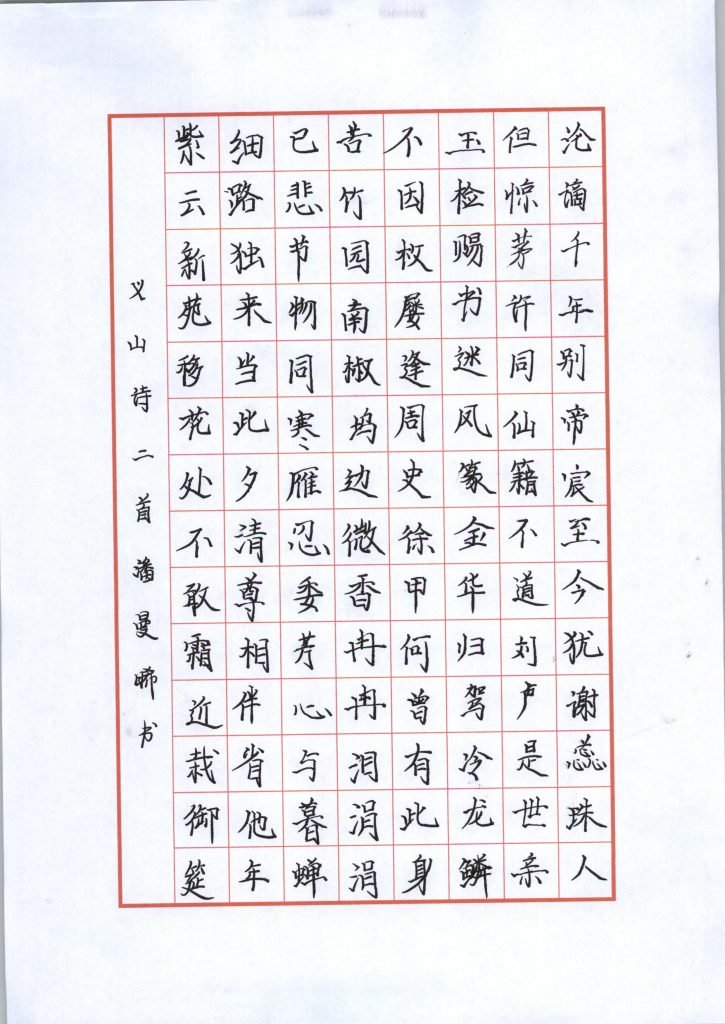 沦谪千年别帝宸至今犹谢蕊珠人
但惊茅许同仙籍不道刘卢是世亲
玉检赐书迷凤篆金华归驾冷龙鳞
不因杖屦逢周史徐甲何曾有此身
苦竹园南椒坞边微香冉冉泪涓涓
已悲节物同寒雁忍委芳心与暮蝉
细路独来当此夕清尊相伴省他年
紫云新苑移花处不敢霜近栽御筵
义山诗二首潘曼晞书